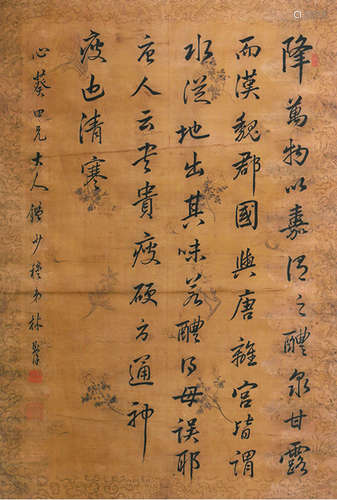 降萬物以嘉謂之醴泉甘露
而漢魏郡國與唐離宮皆謂
水從地出其味若醴得毋誤耶
唐人云書貴瘦硬方通神
瘦也清寒
心葵四兄大人 少穆弟林